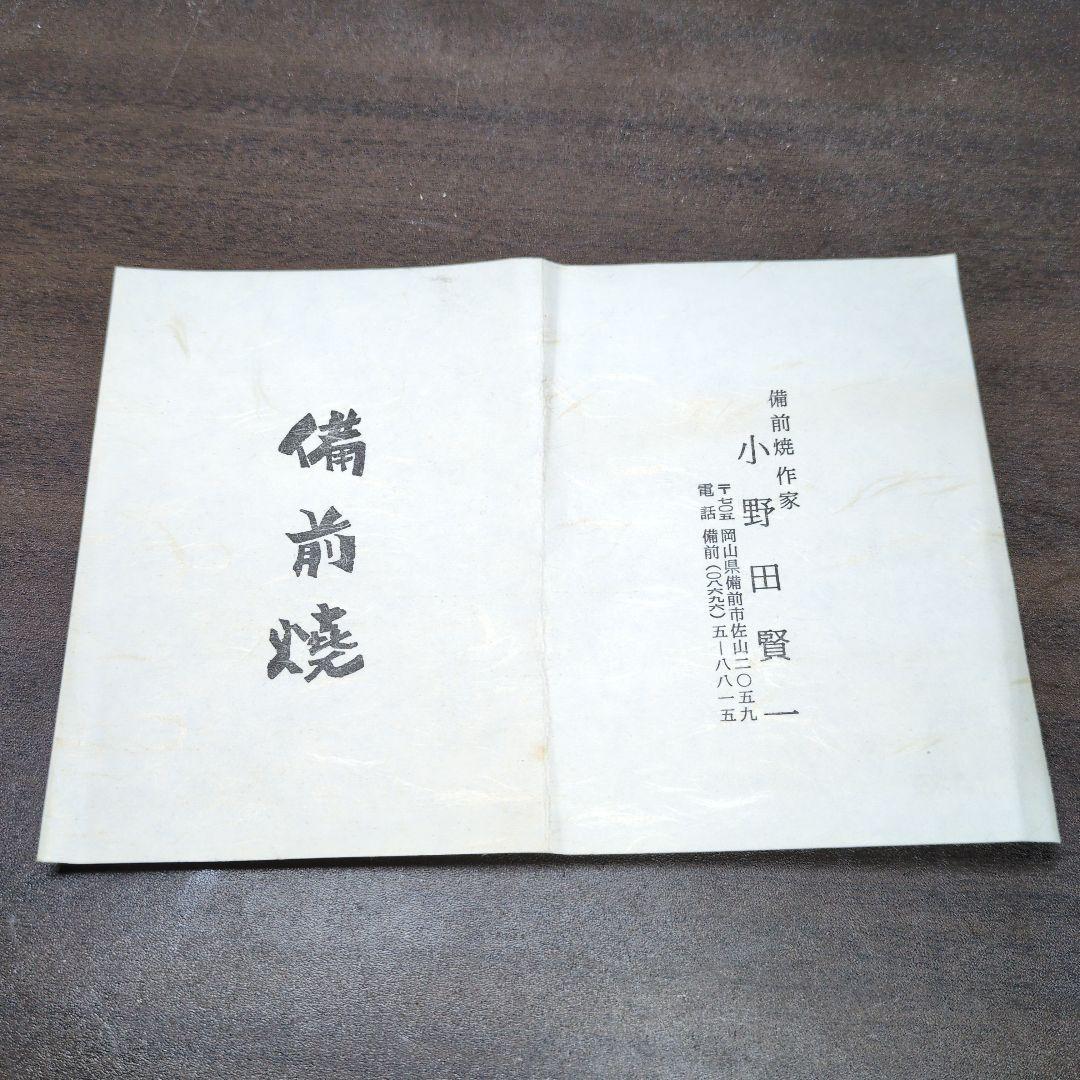 備前焼作家
小野田賢一
〒七〇五 岡山県備前市佐山二〇五九
電話 備前(〇八六九六)五―八八一五
備前燒